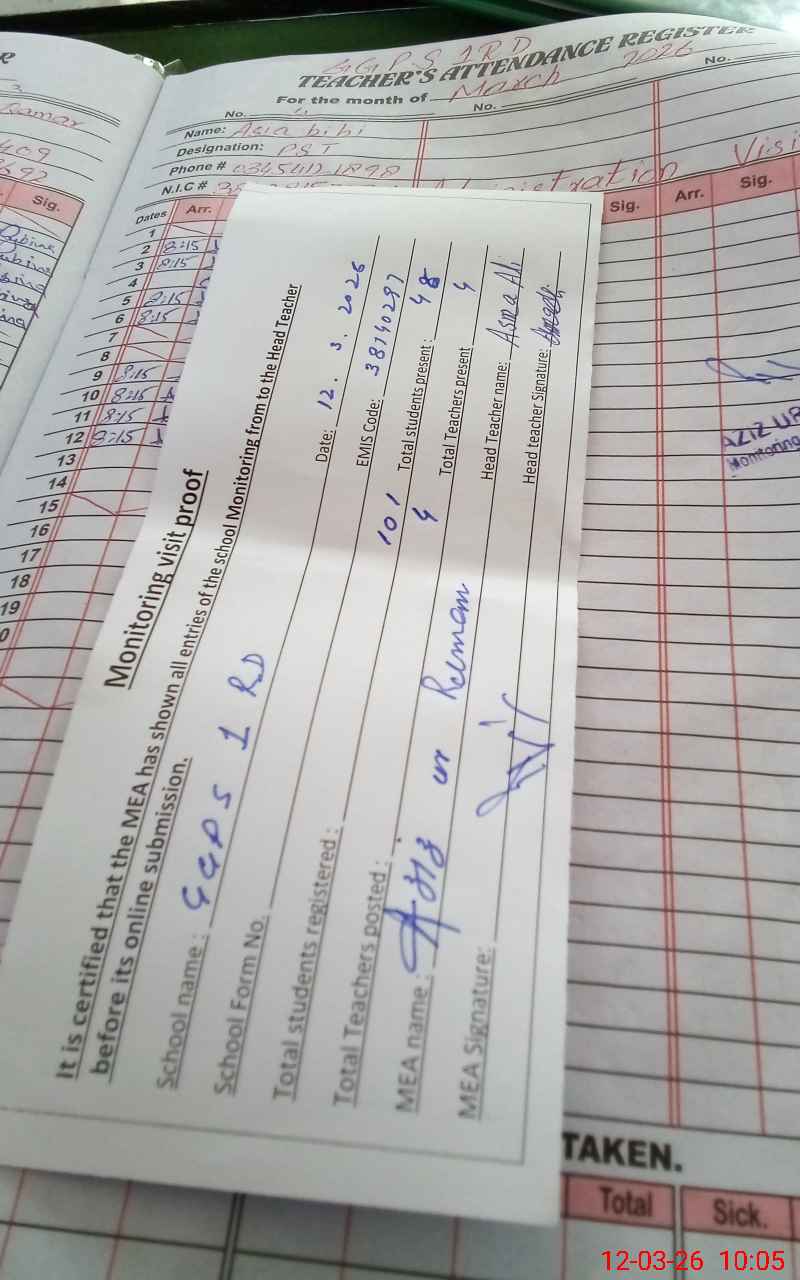 GGPS 1RD
TEACHER'S ATTENDANCE REGISTER
For the month of March 2026
No. No. No.
Name: Asia bibi
Designation: PST
Phone #
N.I.C #
Administration Visi
Dates Arr. Sig. Arr. Sig.
Sig.
1
2 8:15
3 8:15
4
5 8:15
6 8:15
7
8
9 8:15
10 8:15
11 8:15
12 8:15
13
14
15
16
17
18
19
0
AZIZ UR
Monitoring
Monitoring visit proof
It is certified that the MEA has shown all entries of the school Monitoring from to the Head Teacher
before its online submission.
School name: GGPS 1 RD Date: 12.3.2026
School Form No. EMIS Code: 38740297
Total students registered: 101 Total students present: 48
Total Teachers posted: 4 Total Teachers present 4
MEA name: Aziz ur Rehman Head Teacher name: Asma Ali
MEA Signature: Head teacher Signature:
TAKEN.
Total Sick.
12-03-26 10:05